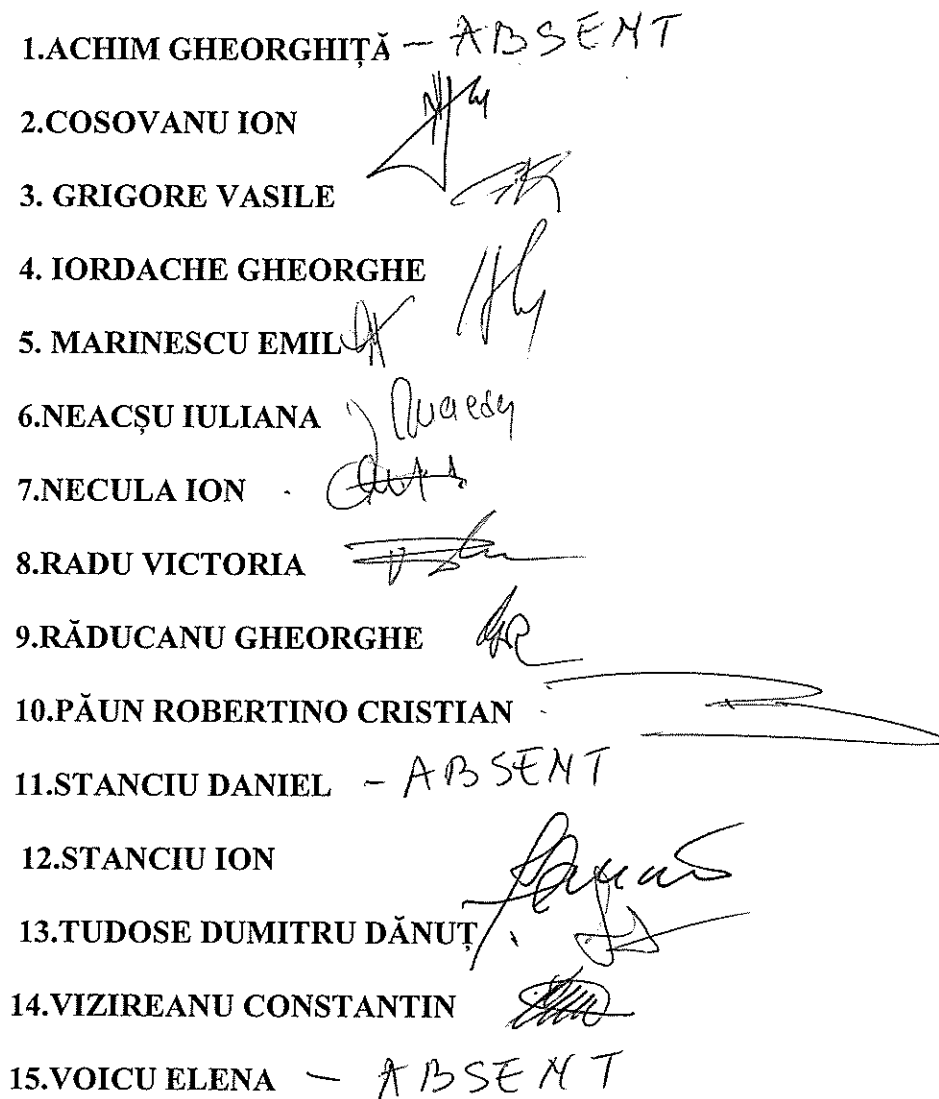 1.ACHIM GHEORGHIȚĂ – ABSENT
2.COSOVANU ION
3. GRIGORE VASILE
4. IORDACHE GHEORGHE
5. MARINESCU EMIL
6.NEACȘU IULIANA
7.NECULA ION
8.RADU VICTORIA
9.RĂDUCANU GHEORGHE
10.PĂUN ROBERTINO CRISTIAN
11.STANCIU DANIEL – ABSENT
12.STANCIU ION
13.TUDOSE DUMITRU DĂNUȚ
14.VIZIREANU CONSTANTIN
15.VOICU ELENA – ABSENT